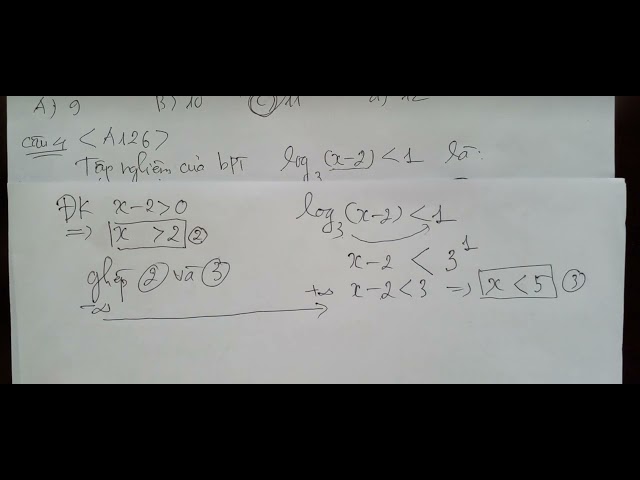 A) 9 B) 10 C) 11 d) 12
Câu 4 <A126>
Tập nghiệm của bPT log₃(x-2) < 1 là:
ĐK x-2>0
=> x >2 ②
ghép ② và ③
-∞ +∞
log₃(x-2) < 1
x-2 < 3¹
x-2<3 => x < 5 ③